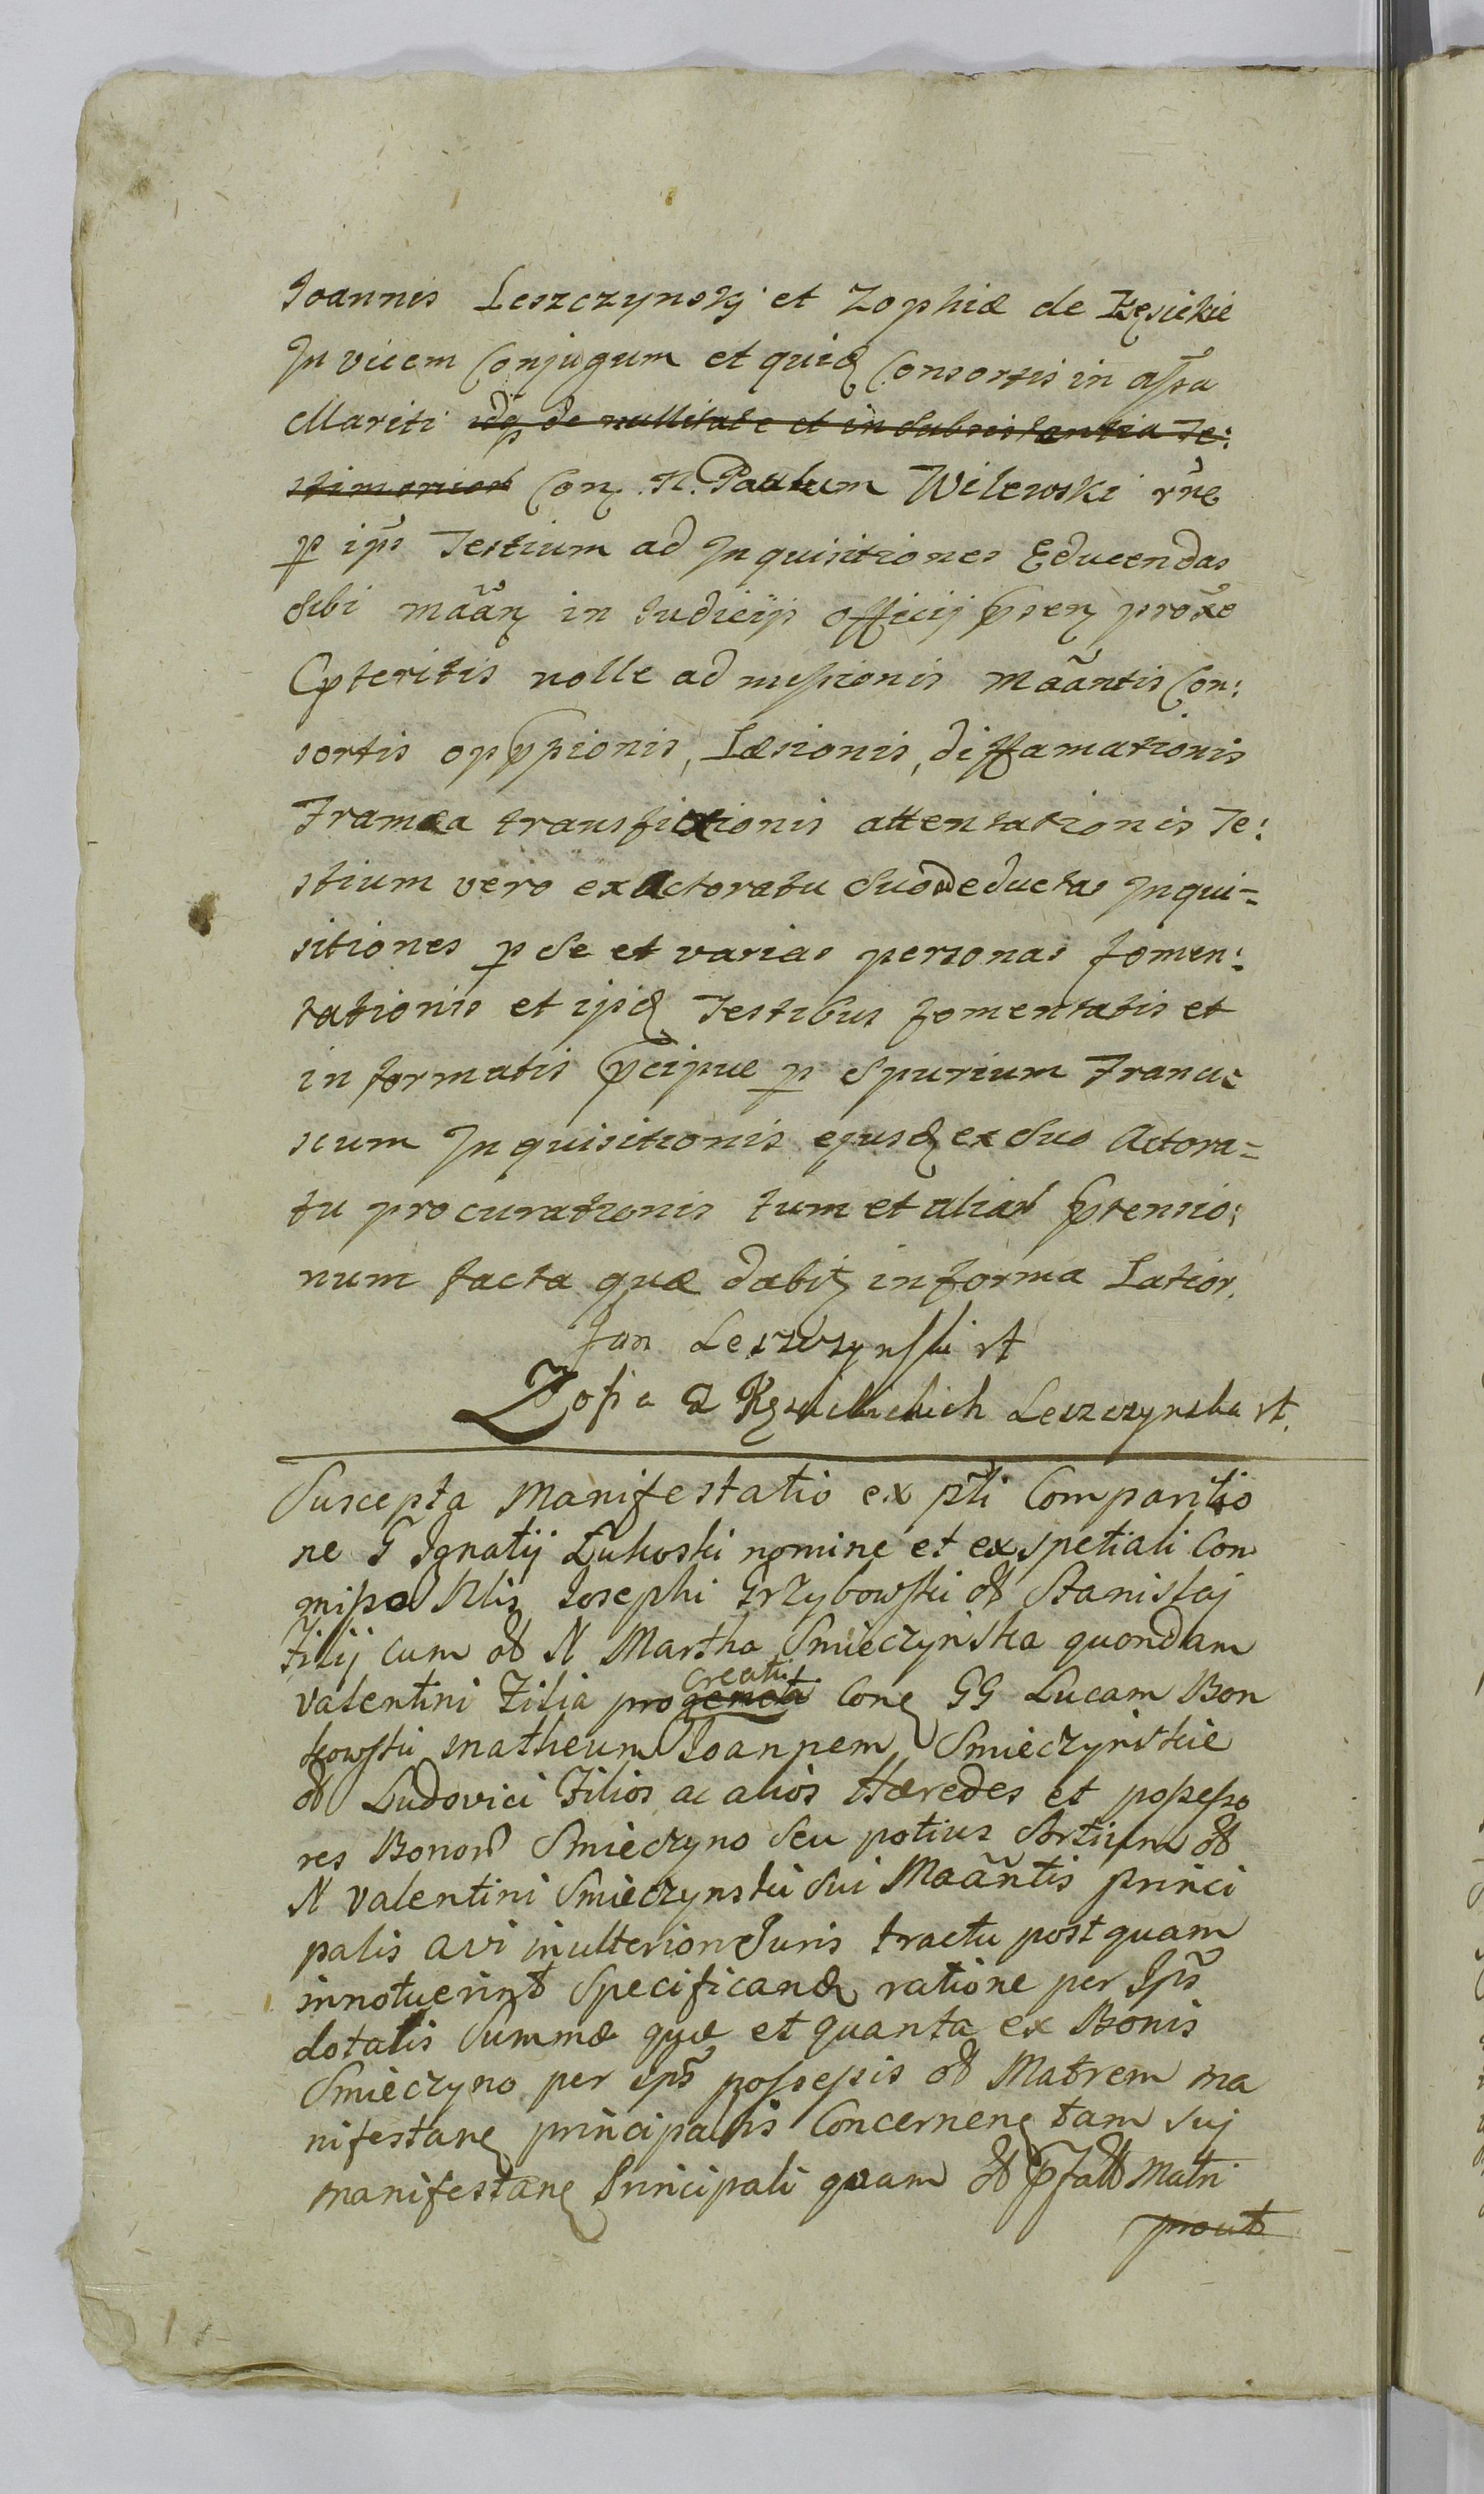 Joannis Leszczynskj et Zophiæ de
In vicem Conjugum et quidę Consortis in assa
Mariti idq de nullitate et in subsistentia Te:
stimonior Conę N. Paulum Wilewski rne
p ips Testium ad Inquisitiones Educendas
Sibi mãanę in Judicijs Officij psenę proxe
Pteritis nolle admissionis Mãantis Con:
sortis oppssionis, Læsionis, diffamationis
Framea transfixionis attentationis Te:
stium vero ex Actoratu Suo deductas Inqui=
sitiones p Se et varias personas fomen:
tationis et ipsę Testibus fomentatis et
informatis pcipue p Spurium Francis
scum Inquisitionis ejusdę ex Suo Actora=
tu procurationis tum et aliar ptensio:
num facta quæ dabitę in forma Latior.
Jan Leszczynski rt
Zofia z Leszczynska rt.
Suscepta Manifestatio ex psti Comparitio
ne G Ignatij Łukoski nomine et ex spetiali Con
misso Nlis Josephi Grzybowski ol Stanislaj
Filij cum ol N Martha Smieczynska quondam
Valentini Filia progenota creati Conę GG Lucam Bon
kowski Matheum Joannem Smieczynskie
ol Ludovici Filios ac alios Hæredes et possesso
res Bonor Smieczyno Seu potius Sortium ol
N Valentini Smieczynski Sui Mãantis princi
palis avi in ulteriore Juris tractu postquam
innotuerint Specificandę ratione per Ips
dotalis Summæ quæ et quanta ex Bonis
Smieczyno per ips possessis ol Matrem ma
nifestanę principalis Concernenę tam Suj
manifestanę Principali quam ol pfatæ Matri
prout